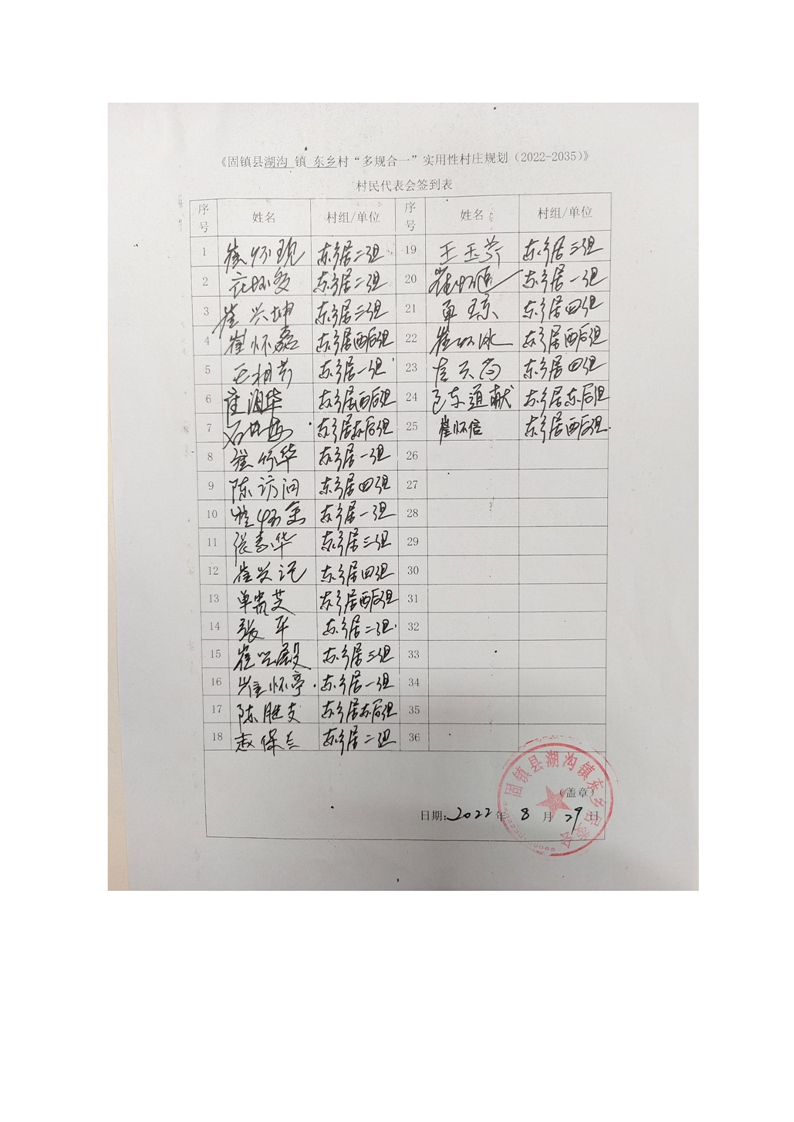 《固镇县湖沟 镇 东乡村“多规合一”实用性村庄规划（2022-2035）》
村民代表会签到表
序号 姓名 村组/单位 序号 姓名 村组/单位
1 崔怀现 东乡居二组 19 王玉芳 东乡居三组
2 东乡居二组 20 东乡居一组
3 崔兴坤 东乡居三组 21 东乡居四组
4 崔怀磊 东乡居西后组 22 东乡居西后组
5 东乡居一组 23 东乡居四组
6 东乡居西后组 24 东乡居东后组
7 东乡居东后组 25 崔怀信 东乡居西后组
8 东乡居一组 26
9 陈访问 东乡居四组 27
10 东乡居一组 28
11 张秀华 东乡居三组 29
12 崔兴记 东乡居四组 30
13 单贵芝 东乡居西后组 31
14 张平 东乡居二组 32
15 崔兴殿 东乡居三组 33
16 崔怀亭 东乡居一组 34
17 陈胜支 东乡居东后组 35
18 赵保兰 东乡居二组 36
固镇县湖沟镇东乡
（盖章）
日期: 2022 年 8 月 29 日